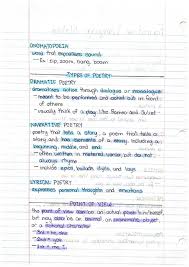 ONOMATOPOEIA
word that expresses sound.
- Ex: zip, zoom, bang, boom
TYPES OF POETRY
DRAMATIC POETRY
dramatizes action through dialogue or monologue
meant to be performed and acted out in front
of others
- usually think of a play like Romeo and Juliet
NARRATIVE POETRY
poetry that tells a story; a poem that tells a
story and has elements of a story, including
a beginning, middle, and end.
- often written in metered verse, but do not
always rhyme
- include epics, ballads, idylls, and lays
LYRICAL POETRY
expresses personal thoughts and emotions
POINT OF VIEW
the point of view can be the actual poet him/herself,
but may also be an animal, an inanimate object, or
a fictional character